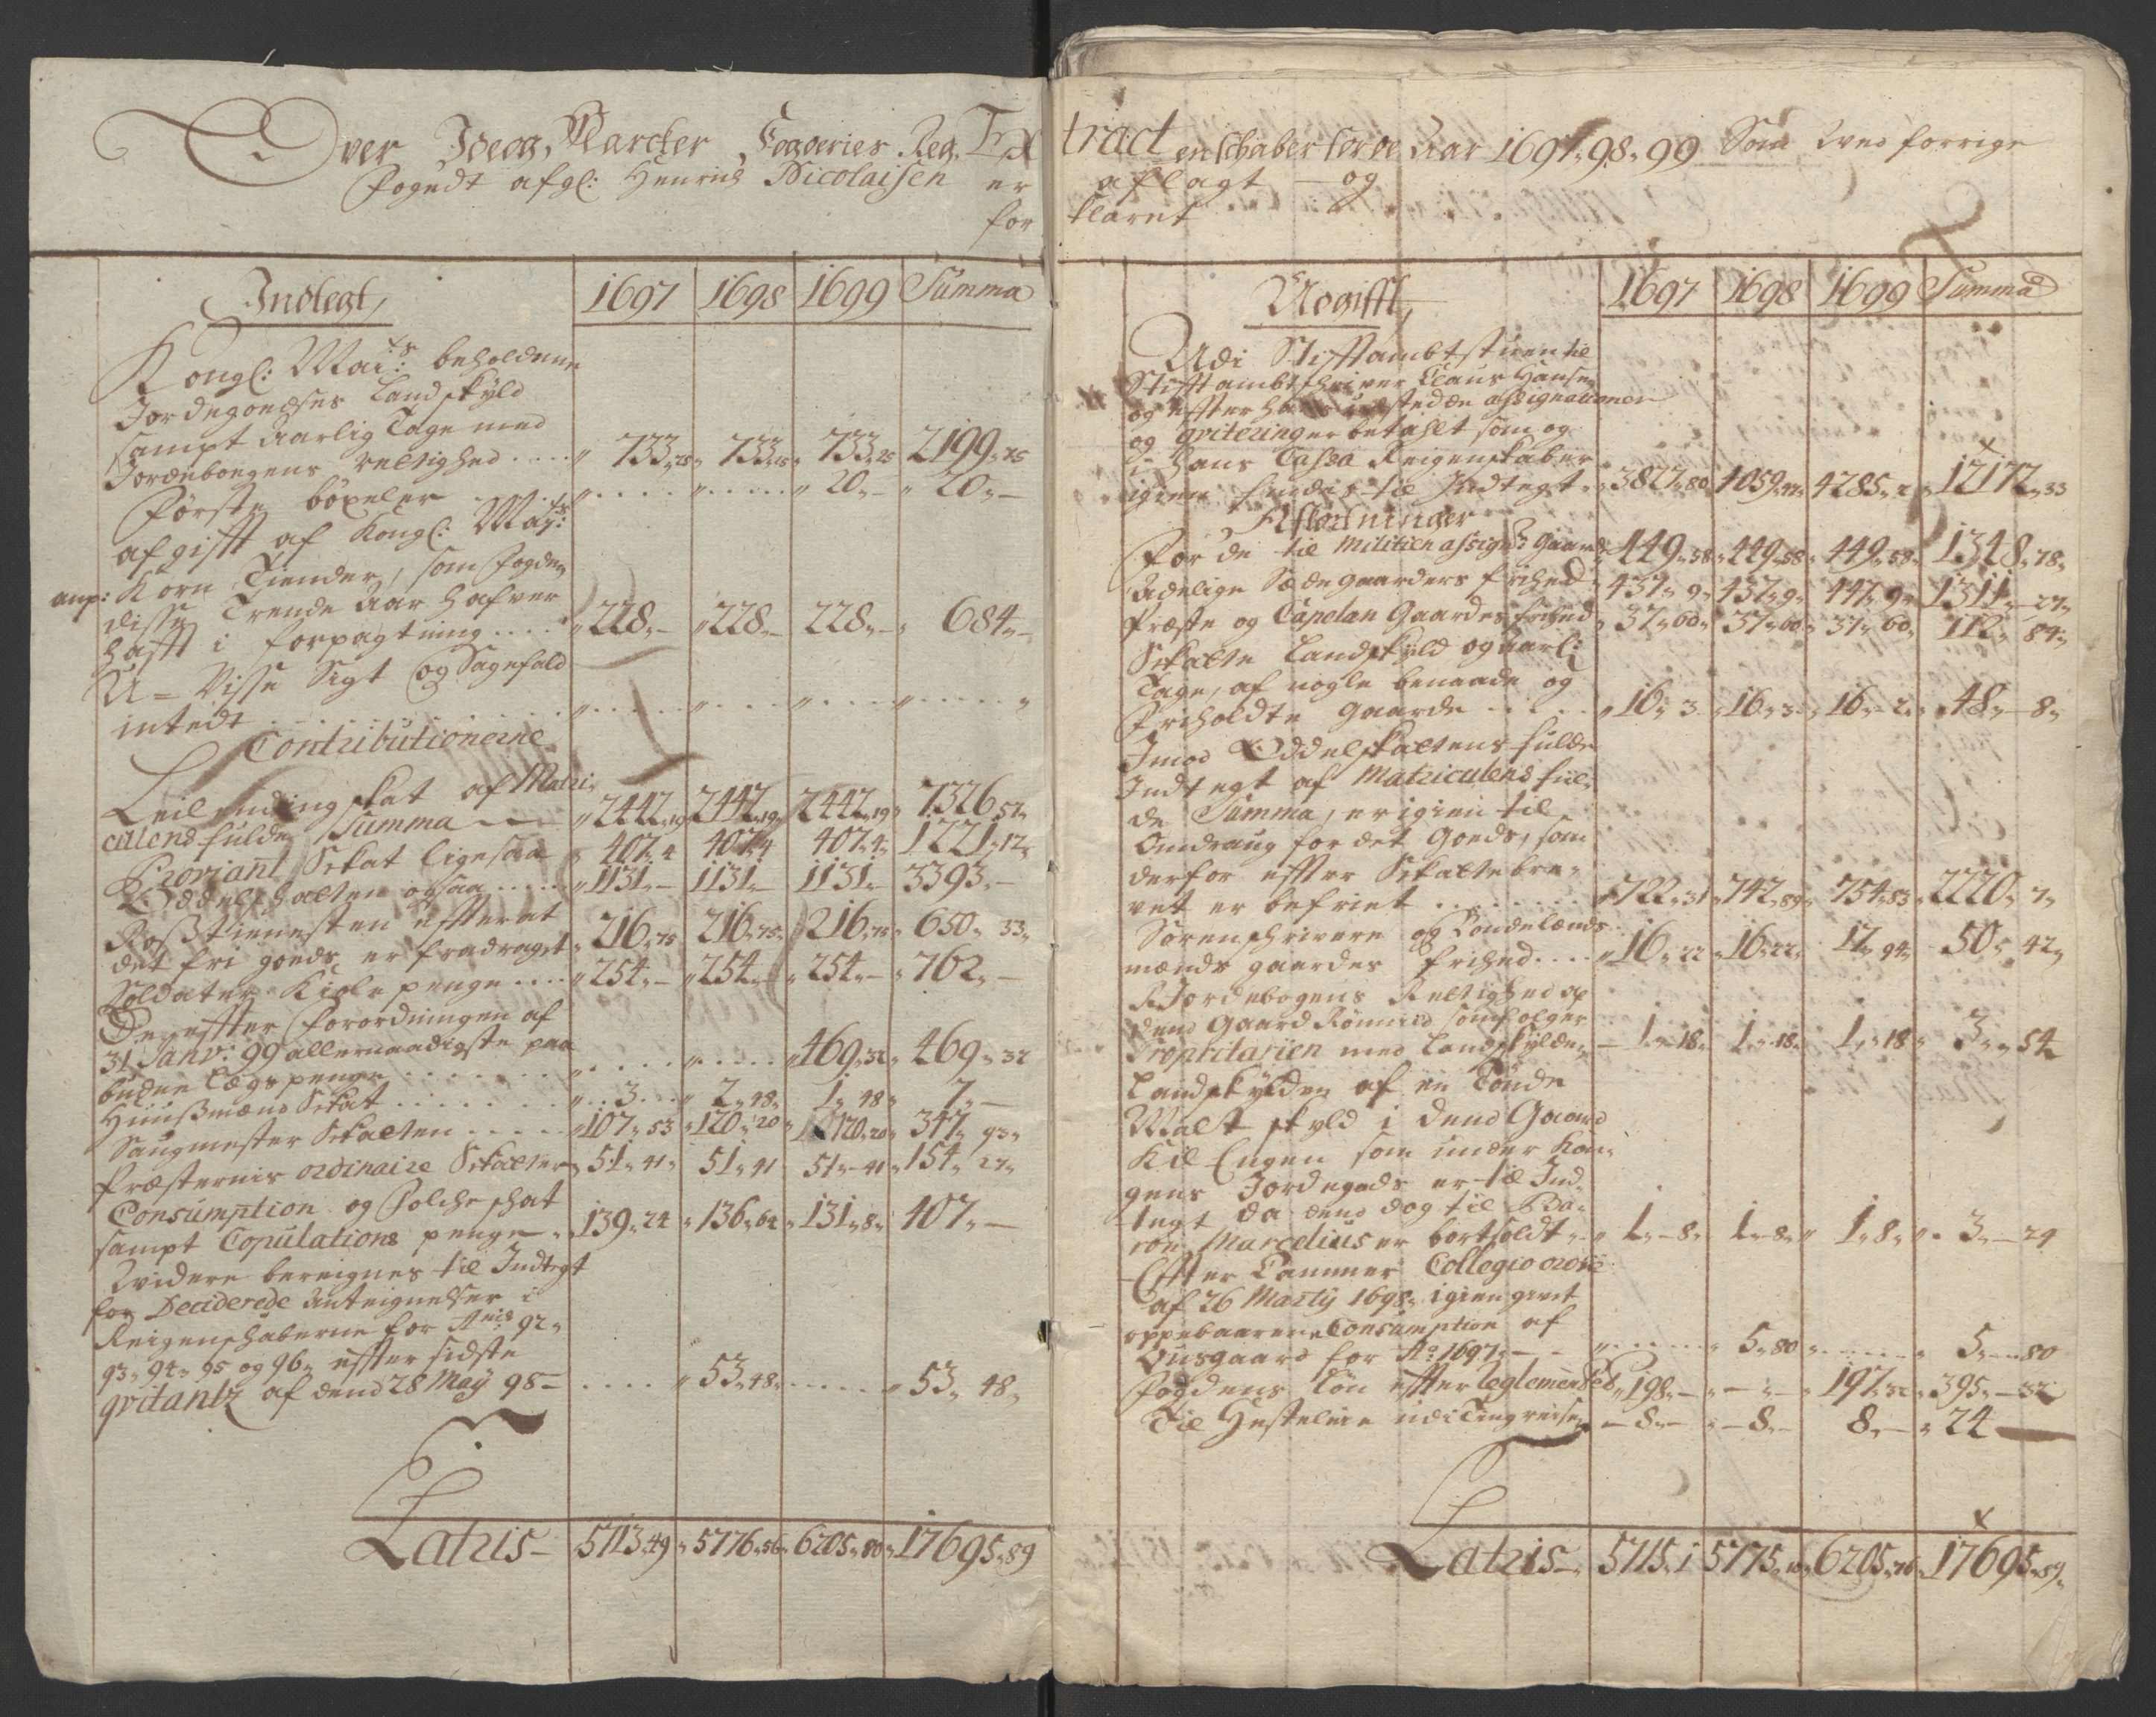 Extract
Over Idem, Marcker Fogderies Reg-enschaber for de Aar 1697, 98, 99 Som Aved forrige
Fogedt afgl: Henrich Nicolaisen er aflagt og
for klaret

Indtegt, 1697 1698 1699 Summa
Kongl: Mai:ts beholdenne
Jordegoedses Landskyld
sampt Aarlig Tage med
Jordebogens rettighed .... 733,25 733,25 733,25 2199,75
Første böxeler ..... 20,- 20,-
afgifft af Kongl: May:ts
anp: Korn Tiender, som Fogden
disse Trende Aar hafver
hafft i forpagtning .... 228,- 228,- 228,- 684,-
U-Visse Sigt og Sagefald
intedt ......
Contributionerne
Leilendingskat af Matri-
culens fulde Summa — 2442,19 2442,19 2442,19 7326,57
Proviant Skat ligesaa 407,4 407,4 407,4 1221,12
Oddelschatten ogsaa ..... 1131,- 1131,- 1131,- 3393,-
Rosstienesten efter at
det fri goeds er fradraget 216,75 216,75 216,75 650,33
Soldater Kiolepenge .... 254,- 254,- 254,- 762,-
Deefter Forordningen af
31 Janv: 99 allernaadigste paa
budne Lægspenge ....... 469,32 469,32
Huusmænd Skat ....... 3 2,48 1,48 7,-
Saugmester Skatten ..... 107,53 120,20 120,20 347,93
Præsternis ordinaire Skatter 51,41 51,41 51,41 154,27
Consumption og Folcheschat
sampt Copulations penge 139,24 136,64 131,8 407,-
Widere bereignes til Indtegt
for Deciderede Anteignelser i
Reigenschaberne for A:nis 92,
93, 94, 95 og 96, effter sidste
qvitantz af dend 28 Maÿ 98 — 53,48 53,48
Latris — 5713,49 5776,56 6205,80 17695,89

Udgifft, 1697 1698 1699 Summa
Udi Stifftambtstuen til
Stifftambtschriver Claus Hansen
og effter hans udstedde assignationer
og qvitteringer betahlt som og
i hans Cassa Reigenskaber
igien findis til Indtegt 3822,80 4059,47 4285,2 12172,33
Afkortninger
For de til Militien assign: Gaarde 449,58 449,58 449,58 1348,78
Adelige Sædegaarders frihed 437,9 437,9 447,9 1311,27
Præste og Capelan Gaardes frihed 37,60 37,60 37,60 112,84
Skatte Landskyld og aarl:
Tage, af nogle benaade og
friholdte gaarde ..... 16,3 16,3 16,2 48,8
Imod Oddelskattens fulde
Indtegt af Matriculens ful-
de Summa, er igien til
Omdraug for det Goeds, som
derfor effter Skattebre-
vet er befriet ........ 722,31 742,89 754,83 2220,7
Sorenschrivere og Bondelænds
mænds gaardes frihed .... 16,22 16,22 17,94 50,42
Jordebogens Rettighed af
dend Gaard Rönnved som følger
Proprietarien med Landskylden 1,18 1,18 1,18 3,54
Landskylden af en Tønde
Malt skyld i dend Gaard
Kil Engen som under Kon-
gens Jordegods er til Ind-
tegt da dend dog til Ba-
ron Marcelius er bortsoldt 1,8 1,8 1,8 3,24
Effter Cammer Collegio ordre
af 26 Martÿ 1698, igiengivet
oppebaarene Consumption af
Ousgaard for A:o 1697 5,80 5,80
Fogdens Løn effter Reglemented 198,- - 197,32 395,32
Til Hesteleie udi Tingreiser 8,- 8,- 8,- 24
Latris — 5715,1 5775, 6205,76 17695,89